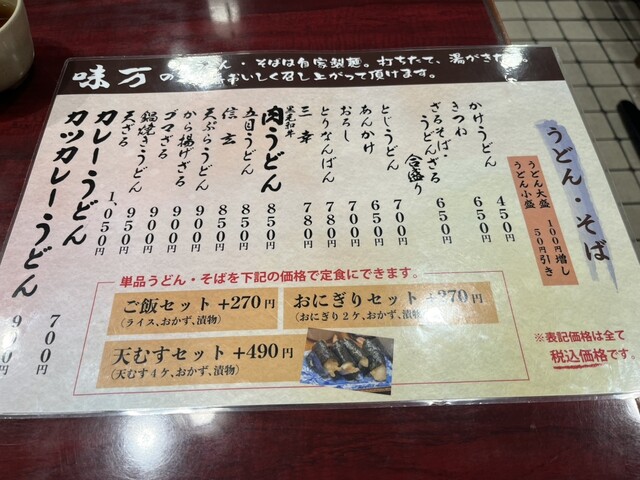 味万のうどん・そばは自家製麺。打ちたて、湯がきたて
おいしく召し上がって頂けます。
うどん・そば
うどん大盛 100円増し
うどん小盛 50円引き
かけうどん 450円
きつね 650円
ざるそば・うどんざる 合盛り 650円
とじうどん 700円
あんかけ 650円
おろし 700円
とりなんばん 780円
三幸 780円
黒毛和牛 肉うどん 850円
五目うどん 850円
信玄 850円
天ぷらうどん 900円
から揚げざる 900円
ゴマざる 900円
鍋焼きうどん 950円
天ざる 1,050円
カレーうどん 700円
カツカレーうどん 900円
単品うどん・そばを下記の価格で定食にできます。
ご飯セット +270円
(ライス、おかず、漬物)
おにぎりセット +270円
(おにぎり2ケ、おかず、漬物)
天むすセット +490円
(天むす4ケ、おかず、漬物)
※表記価格は全て
税込価格です